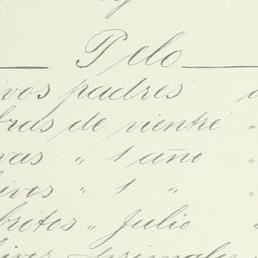 Pelo
ivos padres
bras de vientre "
vas " 1 año "
ivos " 1 " "
britos " Julio "